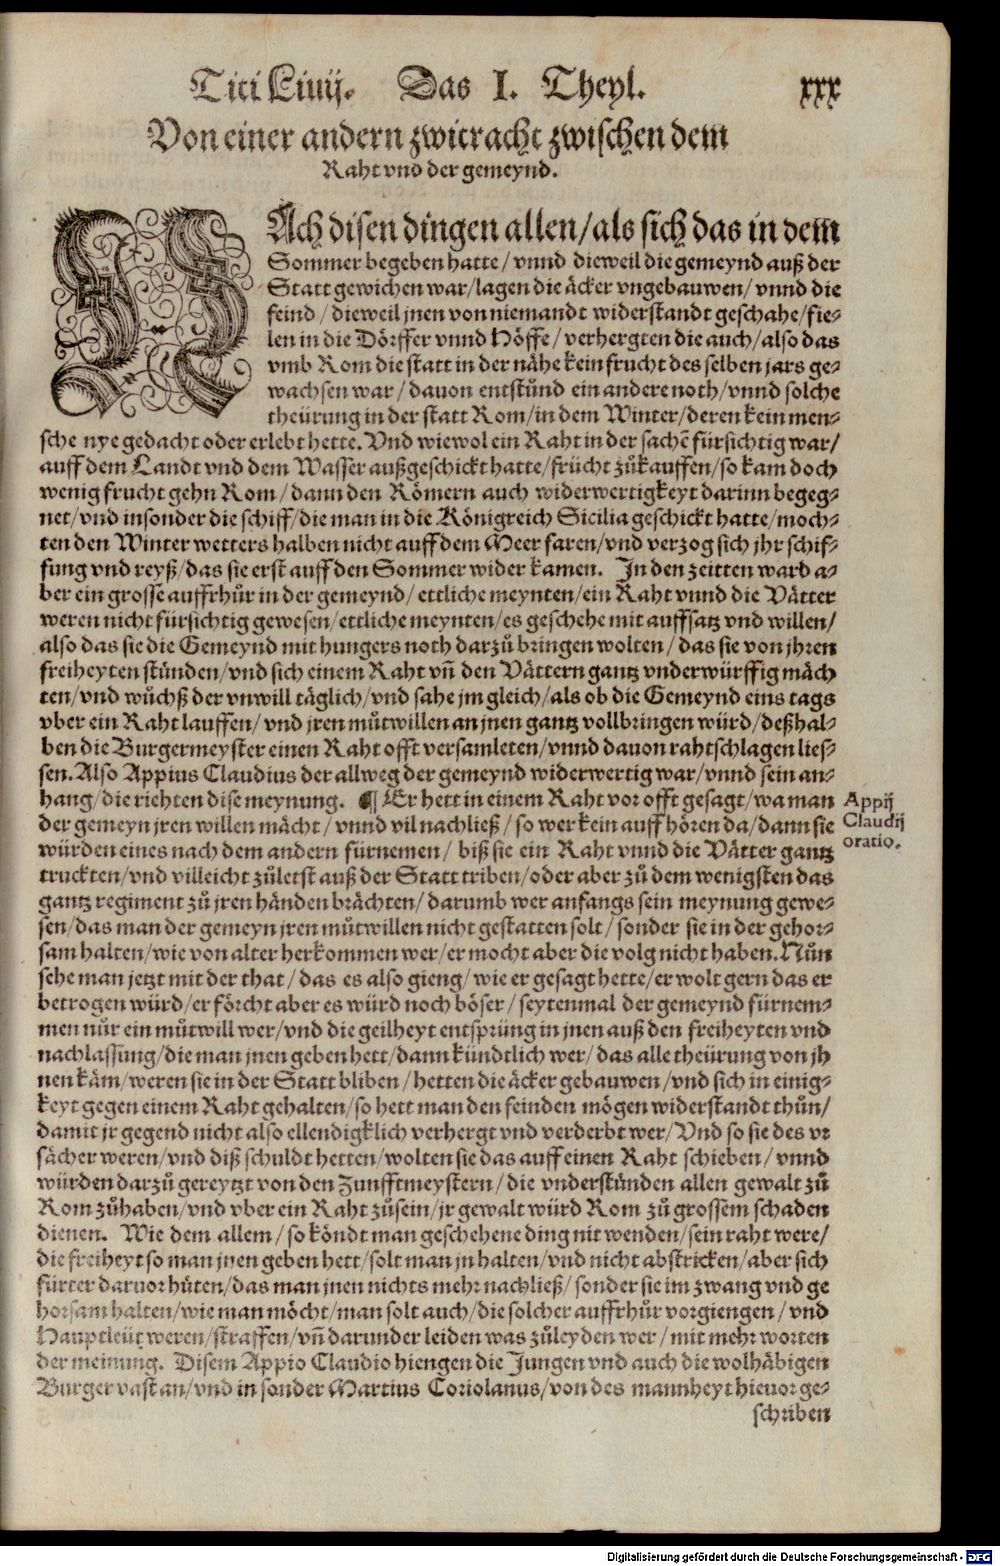 Titi Liuij. Das I. Theyl. xxx
Von einer andern zwitracht zwischen dem
Raht vnd der gemeynd.
NAch disen dingen allen/als sich das in dem
Sommer begeben hatte/vnnd dieweil die gemeynd auß der
Statt gewichen war/lagen die äcker vngebauwen/vnnd die
feind/dieweil jnen von niemandt widerstandt geschahe/fie-
len in die Dörffer vnnd Höffe/verhergten die auch/also das
vmb Rom die statt in der nähe kein frucht des selben jars ge-
wachsen war/dauon entstůnd ein andere noth/vnnd solche
theürung in der statt Rom/in dem Winter/deren kein men-
sche nye gedacht oder erlebt hette. Vnd wiewol ein Raht in der sachẽ fürsichtig war/
auff dem Landt vnd dem Wasser außgeschickt hatte/frücht zůkauffen/so kam doch
wenig frucht gehn Rom/dann den Römern auch widerwertigkeyt darinn begeg-
net/vnd insonder die schiff/die man in die Königreich Sicilia geschickt hatte/moch-
ten den Winter wetters halben nicht auff dem Meer faren/vnd verzog sich jhr schif-
fung vnd reyß/das sie erst auff den Sommer wider kamen. In den zeitten ward a-
ber ein grosse auffrhůr in der gemeynd/ettliche meynten/ein Raht vnnd die Vätter
weren nicht fürsichtig gewesen/ettliche meynten/es geschehe mit auffsatz vnd willen/
also das sie die Gemeynd mit hungers noth darzů bringen wolten/das sie von jhren
freiheyten stünden/vnd sich einem Raht vñ den Vättern gantz vnderwürffig mäch
ten/vnd wůchß der vnwill täglich/vnd sahe jm gleich/als ob die Gemeynd eins tags
vber ein Raht lauffen/vnd jren můtwillen an jnen gantz vollbringen würd/deßhal-
ben die Burgermeyster einen Raht offt versamleten/vnnd dauon rahtschlagen lies-
sen. Also Appius Claudius der allweg der gemeynd widerwertig war/vnnd sein an-
hang/die riehten dise meynung. ¶ Er hett in einem Raht vor offt gesagt/wa man
der gemeyn jren willen mächt/vnnd vil nachließ/so wer kein auff hören da/dann sie
würden eines nach dem andern fürnemen/biß sie ein Raht vnnd die Vätter gantz
truckten/vnd villeicht zůletst auß der Statt triben/oder aber zů dem wenigsten das
gantz regiment zů jren händen brächten/darumb wer anfangs sein meynung gewe-
sen/das man der gemeyn jren můtwillen nicht gestatten solt/sonder sie in der gehor-
sam halten/wie von alter herkommen wer/er mocht aber die volg nicht haben. Nůn
sehe man jetzt mit der that/das es also gieng/wie er gesagt hette/er wolt gern das er
betrogen würd/er förcht aber es würd noch böser/seytenmal der gemeynd fürnem-
men nůr ein můtwill wer/vnd die geilheyt entsprüng in jnen auß den freiheyten vnd
nachlassung/die man jnen geben hett/dann kündtlich wer/das alle theürung von jh
nen käm/weren sie in der Statt bliben/hetten die äcker gebauwen/vnd sich in einig-
keyt gegen einem Raht gehalten/so hett man den feinden mögen widerstandt thůn/
damit jr gegend nicht also ellendigklich verhergt vnd verderbt wer/Vnd so sie des vr
sächer weren/vnd diß schuldt hetten/wolten sie das auff einen Raht schieben/vnnd
würden darzů gereytzt von den Zunfftmeystern/die vnderstünden allen gewalt zů
Rom zůhaben/vnd vber ein Raht zůsein/jr gewalt würd Rom zů grossem schaden
dienen. Wie dem allem/so köndt man geschehene ding nit wenden/sein raht were/
die freiheyt so man jnen geben hett/solt man jn halten/vnd nicht abstricken/aber sich
fürter daruor hüten/das man jnen nichts mehr nachließ/sonder sie im zwang vnd ge
horsam halten/wie man möcht/man solt auch/die solcher auffrhůr vorgiengen/vnd
Hauptleüt weren/straffen/vñ darunder leiden was zůleyden wer/mit mehr worten
der meinung. Disem Appio Claudio hiengen die Jungen vnd auch die wolhäbigen
Burger vast an/vnd in sonder Martius Coriolanus/von des mannheyt hieuor ge-
schriben
Appij
Claudij
oratio.
Digitalisierung gefördert durch die Deutsche Forschungsgemeinschaft - DFG